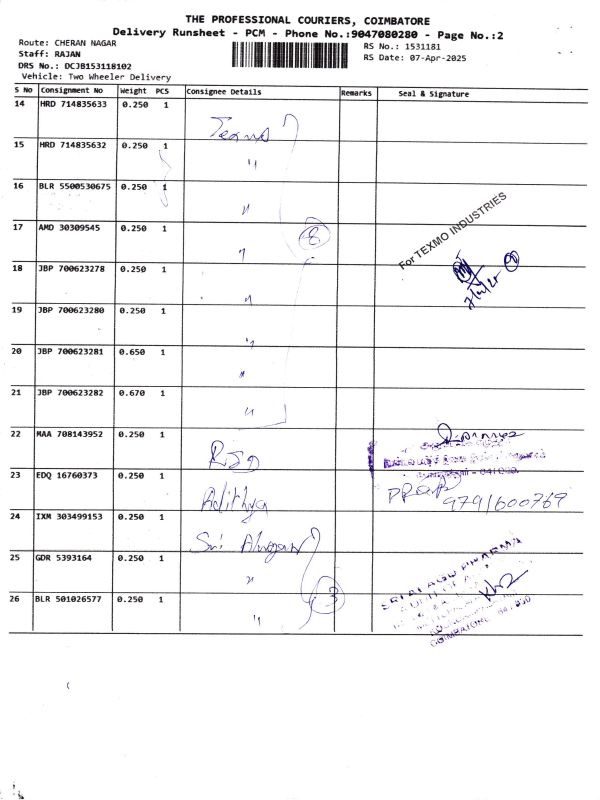 THE PROFESSIONAL COURIERS, COIMBATORE
Delivery Runsheet - PCM - Phone No.:9047080280 - Page No.:2
Route: CHERAN NAGAR
Staff: RAJAN
DRS No.: DCJB153118102
Vehicle: Two Wheeler Delivery
RS No.: 1531181
RS Date: 07-Apr-2025
S No Consignment No Weight PCS Consignee Details Remarks Seal & Signature
14 HRD 714835633 0.250 1 Texmo
15 HRD 714835632 0.250 1 "
16 BLR 5500530675 0.250 1 "
17 AMD 30309545 0.250 1 " 8 For TEXMO INDUSTRIES
18 JBP 700623278 0.250 1 "
19 JBP 700623280 0.250 1 "
20 JBP 700623281 0.650 1 "
21 JBP 700623282 0.670 1 "
22 MAA 708143952 0.250 1
23 EDQ 16760373 0.250 1 Adithya 9791600769
24 IXM 303499153 0.250 1 Sri
25 GDR 5393164 0.250 1 "
26 BLR 501026577 0.250 1 " 3
PHARMA
COIMBATORE